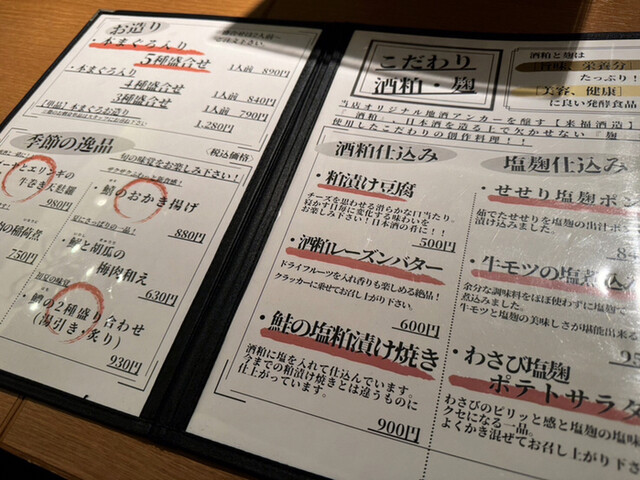 お造り
・本まぐろ入り
5種盛合せ
1人前 890円
・本まぐろ入り
4種盛合せ
1人前 840円
3種盛合せ
1人前 790円
1,280円
季節の逸品
〈税込価格〉
旬の味覚をお楽しみ下さい!
980円
・鱧のおかき揚げ
880円
750円
・鱧と胡瓜の
梅肉和え
630円
・鱧の2種盛り合わせ
(湯引き・炙り)
930円
こだわり
酒粕・麹
酒粕と麹は
たっぷり!
[美容、健康]
に良い発酵食品
当店オリジナル地酒アンカーを醸す【来福酒造】
「酒粕」、日本酒を造る上で欠かせない「麹
使用したこだわりの創作料理!!
酒粕仕込み
・粕漬け豆腐
チーズを思わせる滑らかな口当たり。
寝かす日毎に変化する味わいを
お楽しみ下さい!日本酒の肴に!!
500円
・酒粕レーズンバター
ドライフルーツを入れ香りも楽しめる絶品!
クラッカーに乗せてお召し上がり下さい。
600円
・鮭の塩粕漬け焼き
酒粕に塩を入れて仕込んでいます。
今までの粕漬け焼きとは違うものに
仕上がっています。
900円
塩麹仕込み
・せせり塩麹ポン
茹でたせせりを塩麹の出汁ポ
漬け込みました。
・牛モツの塩煮込
余分な調味料をほぼ使わずに塩麹で
煮込みました。
牛モツと塩麹の美味しさが堪能出来る
・わさび塩麹
ポテトサラダ
わさびのピリッと感と塩麹の塩味
クセになる一品。
よくかき混ぜてお召し上が